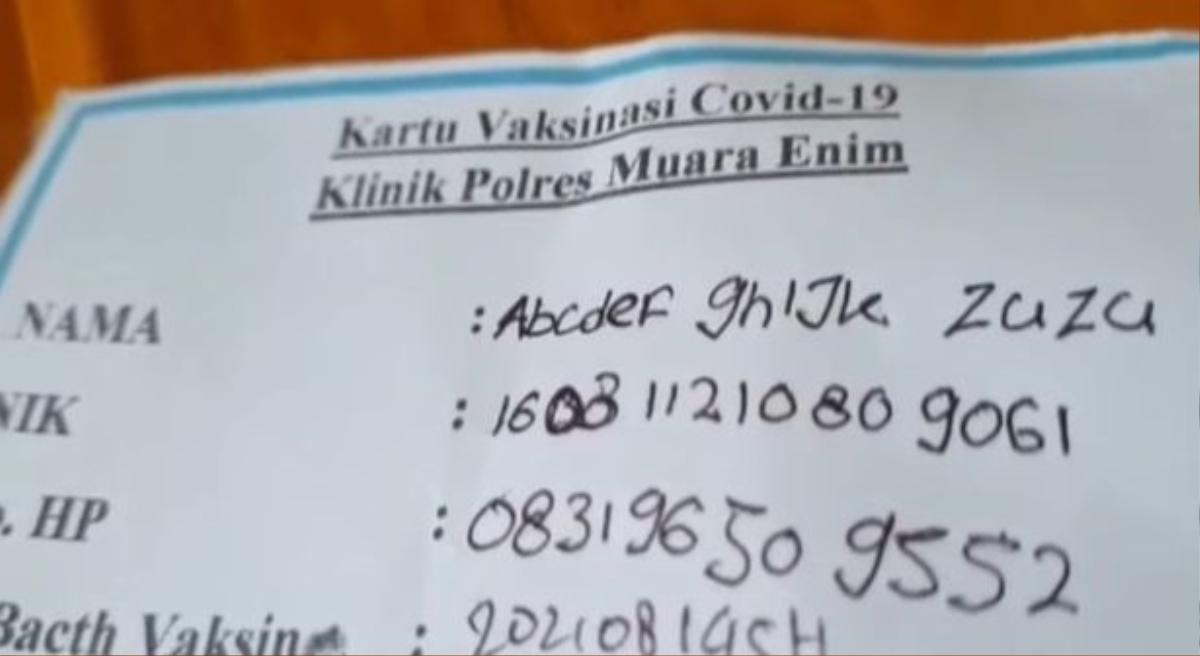 Kartu Vaksinasi Covid-19
Klinik Polres Muara Enim
NAMA : Abcdef ghIJk Zuzu
NIK : 1608 1121080 9061
. HP : 08319650 9552
Bacth Vaksin :